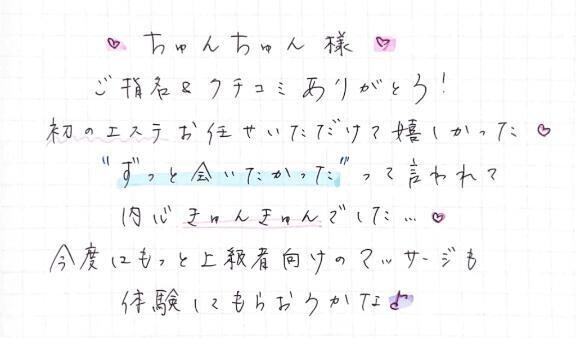 ♡ ちゅんちゅん様 ♡
ご指名&クチコミありがとう!
初のエステお任せいただけて嬉しかった♡
"ずっと会いたかった"って言われて
内心きゅんきゅんでした…♡
今度にもっと上級者向けのマッサージも
体験してもらおうかな♪